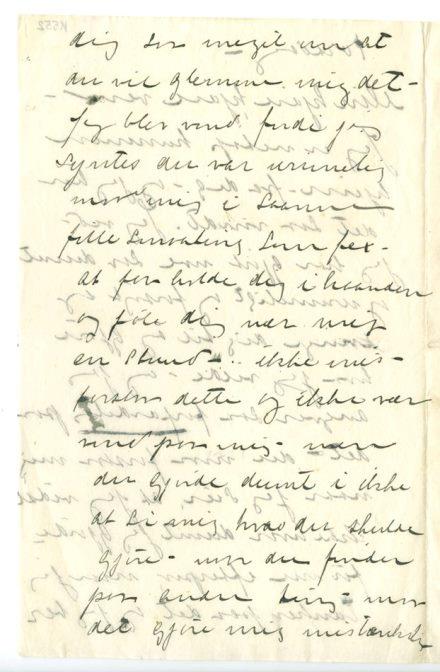 dig saa meget om at
du vil glemme mig det –
Jeg blev vred fordi jeg
syntes du var urimelig
mod mig i saanne
smaating som fex –
at faa holde dig i haanden
og føle dig nær mig
en stund – .. ikke mis-
forstaa dette og ikke vær
vred paa mig – men
du gjorde dumt i ikke
at si mig hvad du skulde
gjøre – når du finder
paa andre ting – maa
det gjøre mig mistænksom